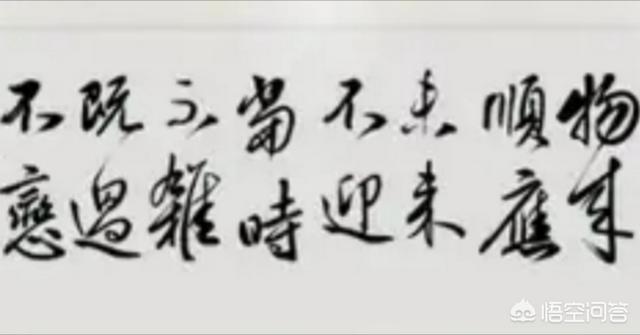 物来
順應
未来
不迎
當時
不雜
既過
不戀
悟空问答